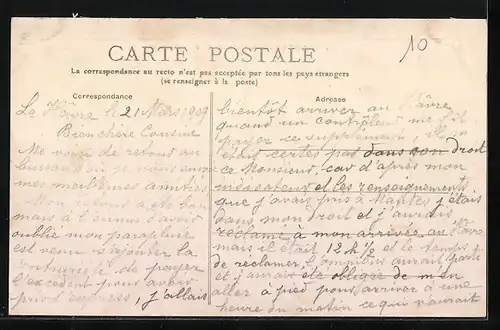 10
CARTE POSTALE
La correspondance au recto n'est pas acceptée par tous les pays étrangers
(se renseigner à la poste)
Correspondance
Le Hâvre le 21 Mars 1909
Bien chère Cousine
Me voici de retour au
bureau
mes meilleures amitiés
mais à l'ennui d'avoir
oublié mon parapluie
est venu s'ajouter la
de payer
l'excédent pour avoir
pris l'express, j'allais
Adresse
bientôt arriver au Hâvre
quand un contrôleur me fit
payer ce supplément, il n'en
était certes pas dans son droit
ce Monsieur, car d'après mon
et les renseignements
que j'avais pris à Mantes j'étais
dans mon droit et j'aurais
réclamé à mon arrivée au Hâvre
mais il était 12h½ et le temps
de réclamer l'omnibus aurait parti
et j'aurais été obligée de m'en
aller à pied pour arriver à une
heure du matin ce qui n'aurait